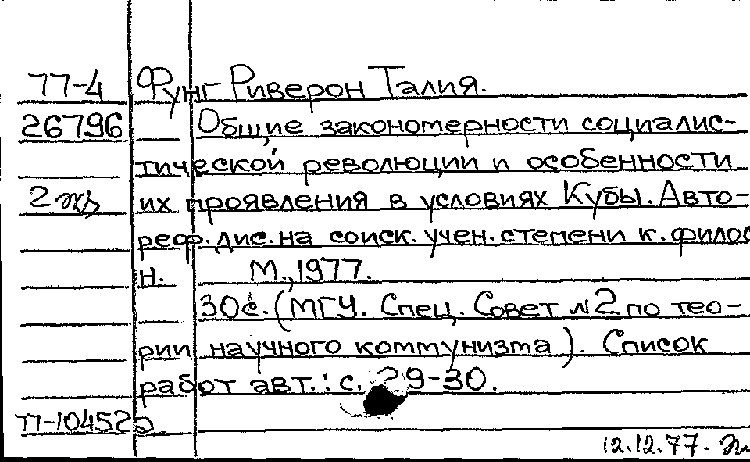 77-4 Фунг Риверон Талия.
26796 Общие закономерности социалис-
тической революции и особенности
2 их проявления в условиях Кубы. Авто-
реф. дис. на соиск. учен. степени к. филос
н. М., 1977.
30с. (МГУ. Спец. Совет №2 по тео-
рии научного коммунизма). Список
работ авт.: с. 29-30.
12.12.77.